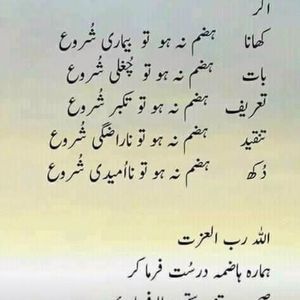 اگر
کھانا ہضم نہ ہو تو بیماری شُروع
بات ہضم نہ ہو تو چُغلی شُروع
تعریف ہضم نہ ہو تو تکبر شُروع
تنقید ہضم نہ ہو تو ناراضگی شُروع
دُکھ ہضم نہ ہو تو نااُمیدی شُروع
اللہ رب العزت
ہمارہ ہاضمہ درسُت فرما کر